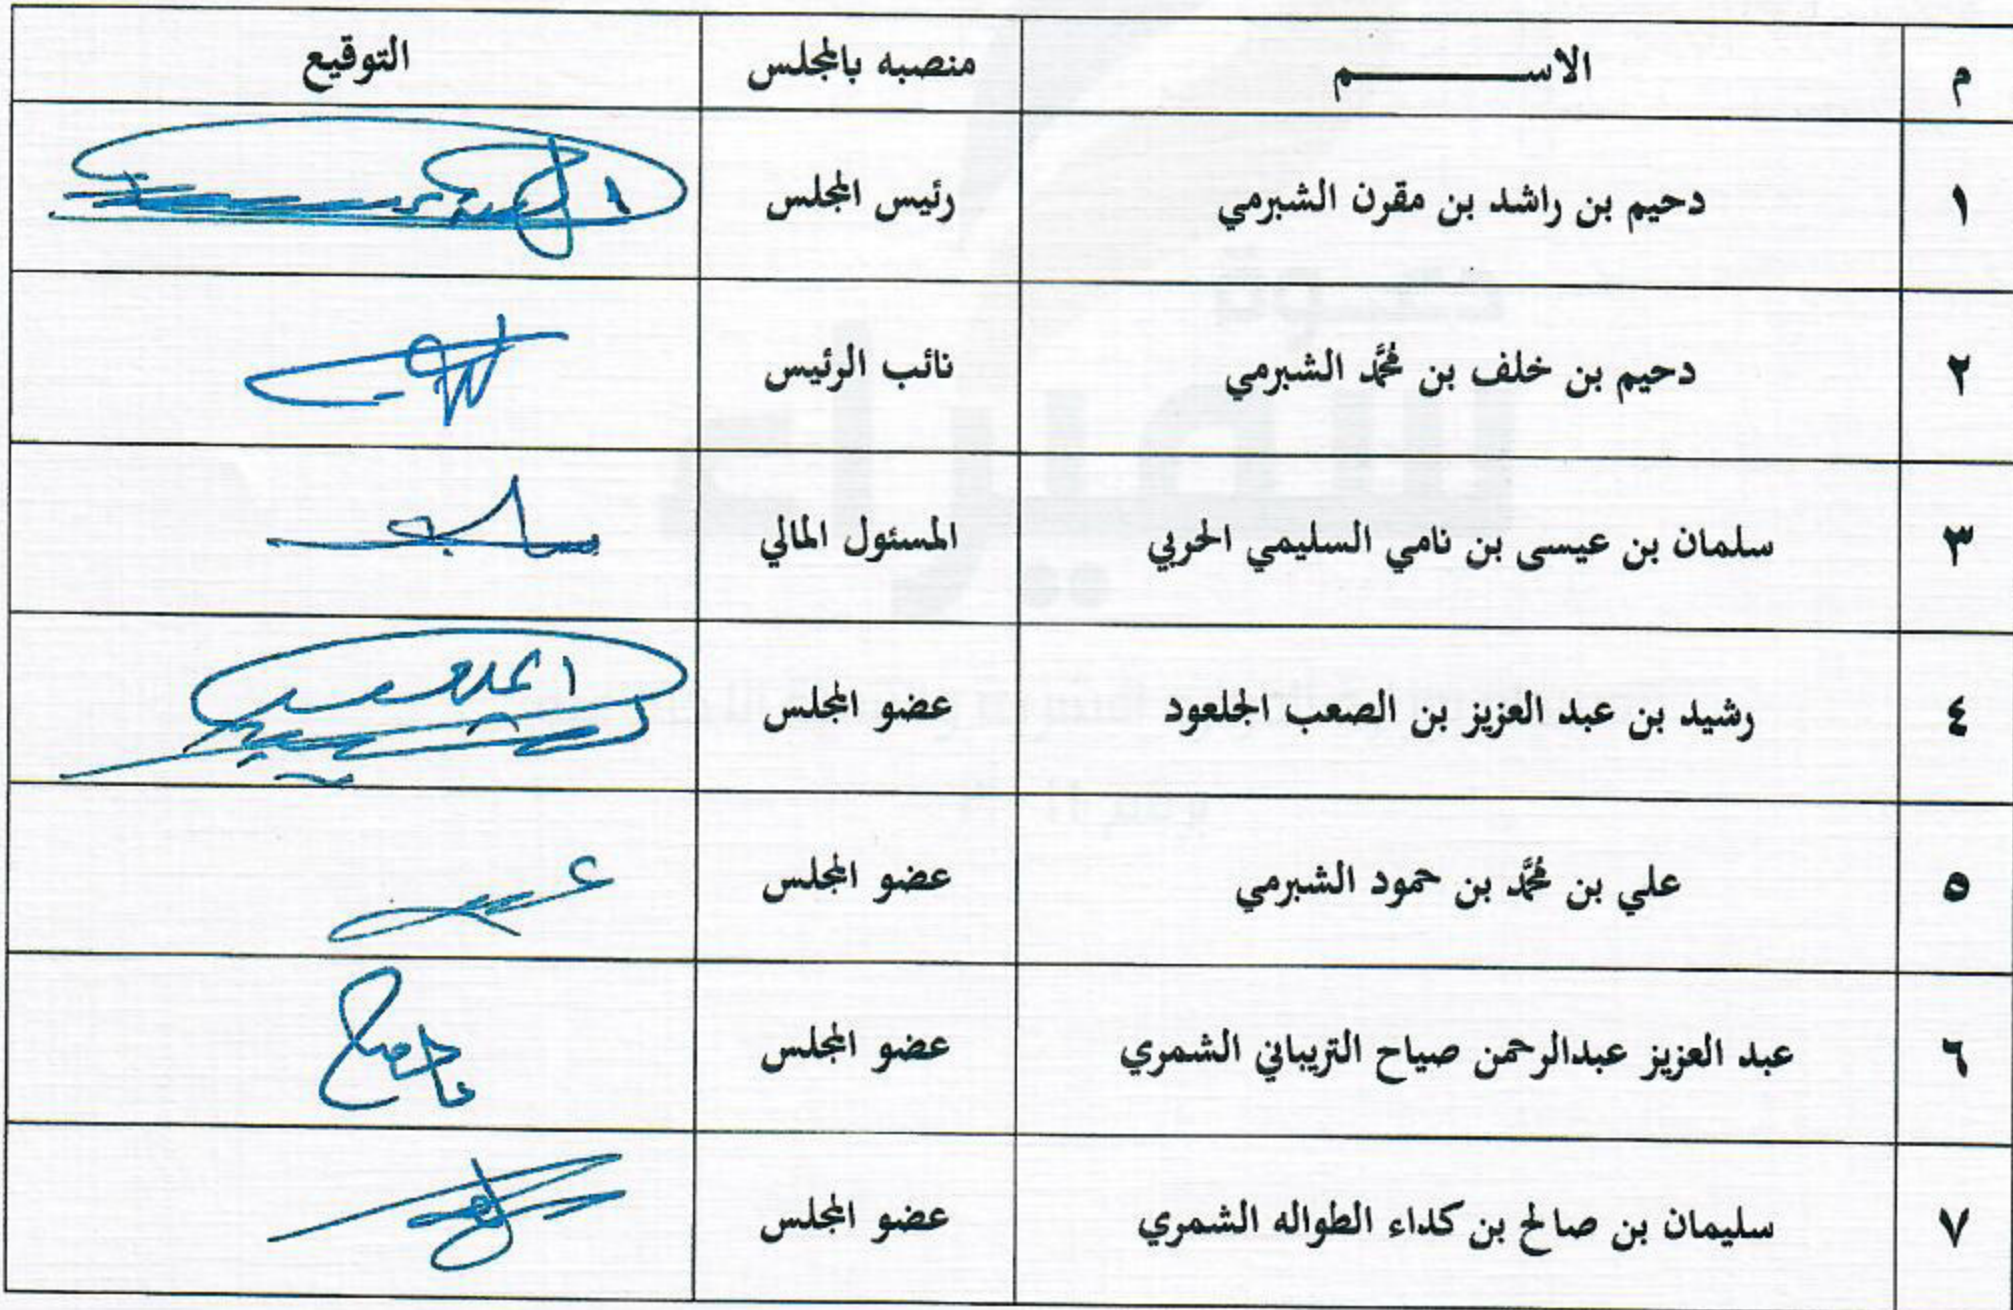 م الاســـــــم منصبه بالمجلس التوقيع
١ دحيم بن راشد بن مقرن الشبرمي رئيس المجلس
٢ دحيم بن خلف بن محمَّد الشبرمي نائب الرئيس
٣ سلمان بن عيسى بن نامي السليمي الحربي المسئول المالي
٤ رشيد بن عبد العزيز بن الصعب الجلعود عضو المجلس
٥ علي بن محمَّد بن حمود الشبرمي عضو المجلس
٦ عبد العزيز عبدالرحمن صياح التريباني الشمري عضو المجلس
٧ سليمان بن صالح بن كداء الطواله الشمري عضو المجلس